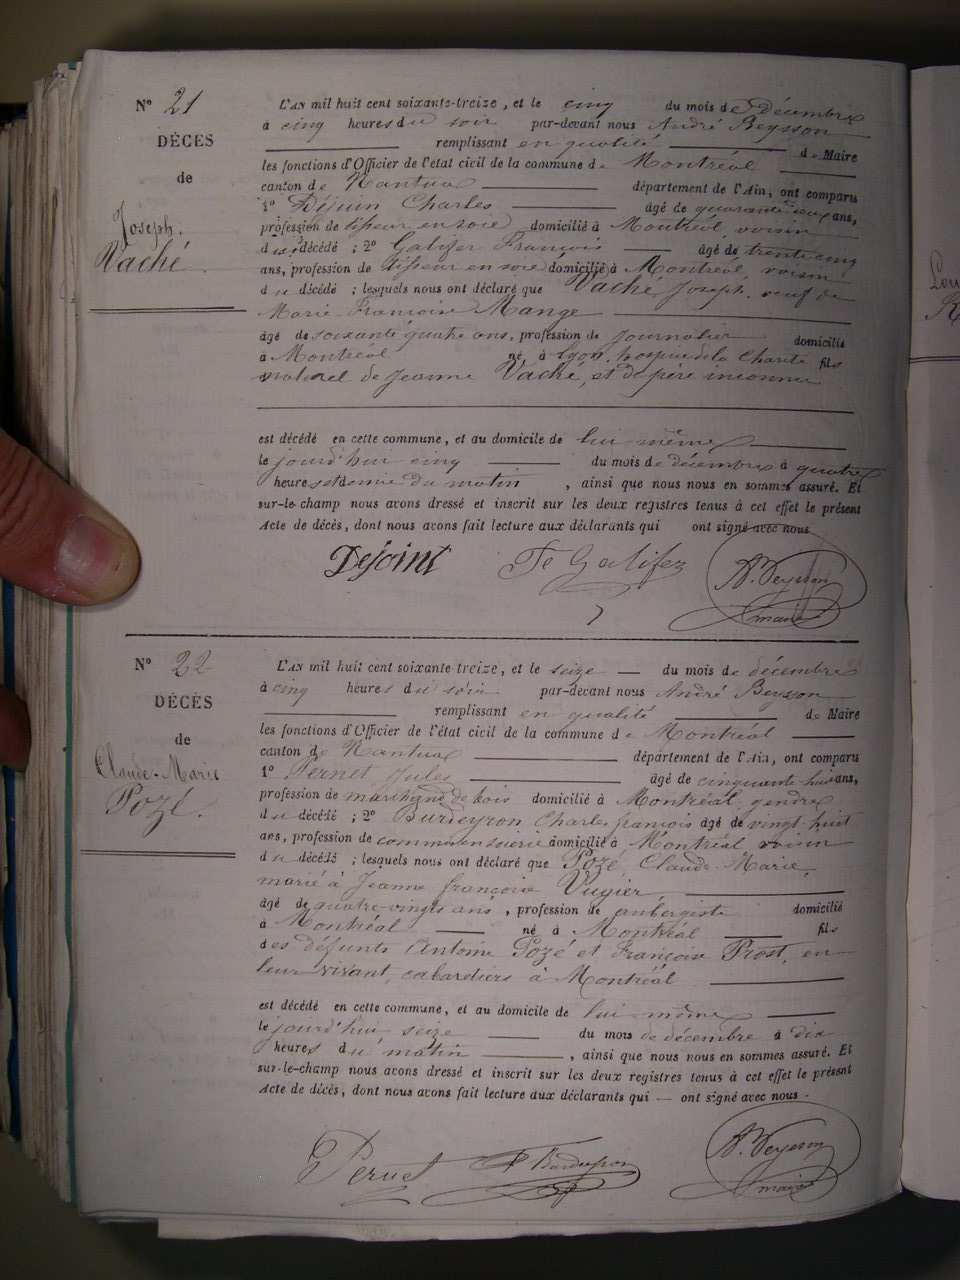 N° 21
DÉCES
de
Joseph.
Vaché
L'AN mil huit cent soixante-treize, et le cinq du mois de décembre
à cinq heures du soir par-devant nous André Beysson
remplissant en qualité de Maire
les fonctions d'Officier de l'état civil de la commune de Montréal
canton de Nantua département de l'Ain, ont comparu
1° Déjuin Charles âgé de quarante ans,
profession de tisseur en soie domicilié à Montréal, voisin
du décédé ; 2° Galifer François âgé de trente cinq
ans, profession de tisseur en soie domicilié à Montréal, voisin
du décédé ; lesquels nous ont déclaré que Vaché Joseph, veuf de
Marie Françoise Mange
âgé de soixante quatre ans, profession de Journalier domicilié
à Montréal né à Lyon, hospice de la Charité fils
naturel de Jeanne Vaché, et de père inconnu
est décédé en cette commune, et au domicile de lui même
le jourd'hui cinq du mois de décembre à quatre
heures et demie du matin, ainsi que nous nous en sommes assuré. Et
sur-le-champ nous avons dressé et inscrit sur les deux registres tenus à cet effet le présent
Acte de décès, dont nous avons fait lecture aux déclarants qui ont signé avec nous
Dejoint Fs Galifer A. Beysson
maire
N° 22
DÉCÈS
de
Claude-Marie
Pozé.
L'AN mil huit cent soixante-treize, et le seize du mois de décembre
à cinq heures du soir par-devant nous André Beysson
remplissant en qualité de Maire
les fonctions d'Officier de l'état civil de la commune de Montréal
canton de Nantua département de l'Ain, ont comparu
1° Pernet Jules âgé de cinquante huit ans,
profession de marchand de bois domicilié à Montréal, gendre
du décédé ; 2° Burdeyron Charles françois âgé de vingt-huit
ans, profession de commis en soierie domicilié à Montréal voisin
du décédé ; lesquels nous ont déclaré que Pozé, Claude-Marie,
marié à Jeanne françoise Vugier
âgé de quatre-vingts ans, profession de aubergiste domicilié
à Montréal né à Montréal fils
des défunts Antoine Pozé et Françoise Prost, en
leur vivant, cabaretiers à Montréal
est décédé en cette commune, et au domicile de lui même
le jourd'hui seize du mois de décembre à dix
heures du matin, ainsi que nous nous en sommes assuré. Et
sur-le-champ nous avons dressé et inscrit sur les deux registres tenus à cet effet le présent
Acte de décès, dont nous avons fait lecture aux déclarants qui — ont signé avec nous.
Pernet Burdeyron A. Beysson
maire